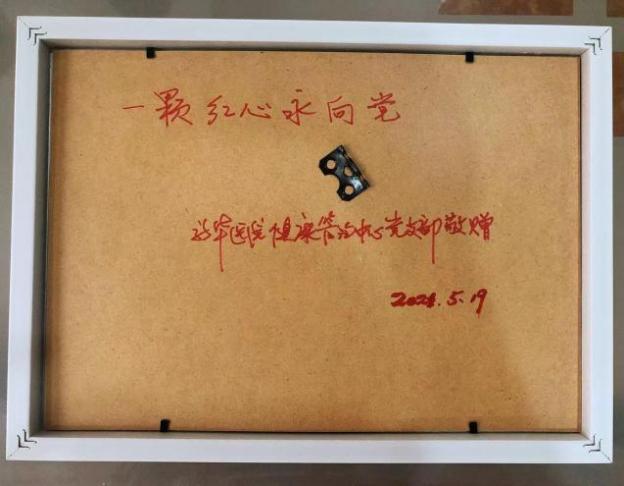 一颗红心永向党
华医院健康管治中心党支部敬赠
2021.5.19